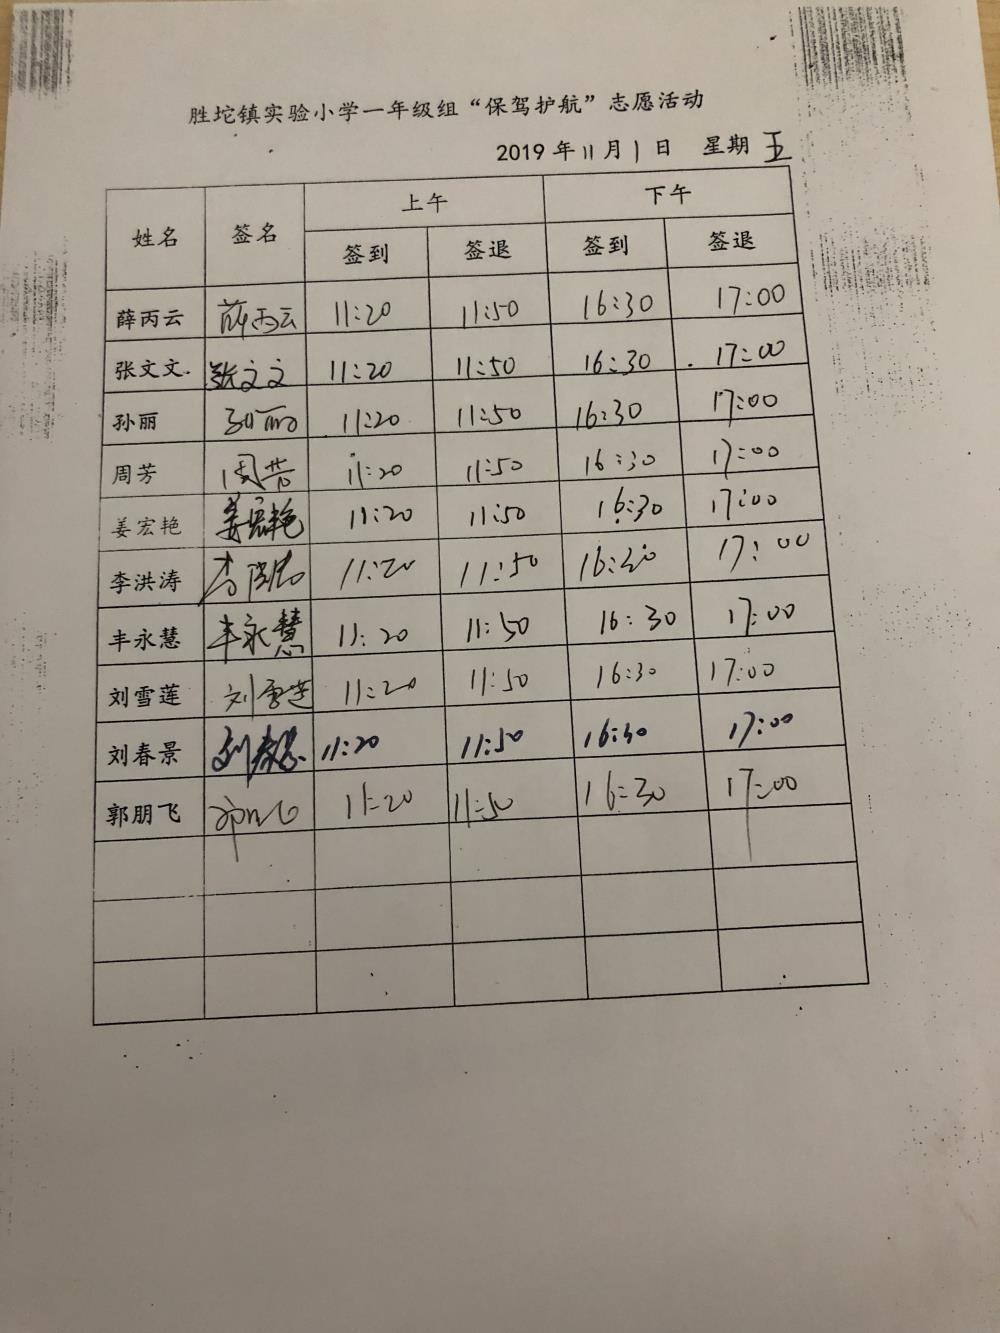 胜坨镇实验小学一年级组“保驾护航”志愿活动
2019 年 11 月 1 日 星期 五
姓名 签名 上午 下午
签到 签退 签到 签退
薛丙云 薛丙云 11:20 11:50 16:30 17:00
张文文. 张文文 11:20 11:50 16:30 17:00
孙丽 孙丽 11:20 11:50 16:30 17:00
周芳 周芳 11:20 11:50 16:30 17:00
姜宏艳 姜宏艳 11:20 11:50 16:30 17:00
李洪涛 李洪涛 11:20 11:50 16:30 17:00
丰永慧 丰永慧 11:20 11:50 16:30 17:00
刘雪莲 刘雪莲 11:20 11:50 16:30 17:00
刘春景 刘春景 11:20 11:50 16:30 17:00
郭朋飞 11:20 11:50 16:30 17:00